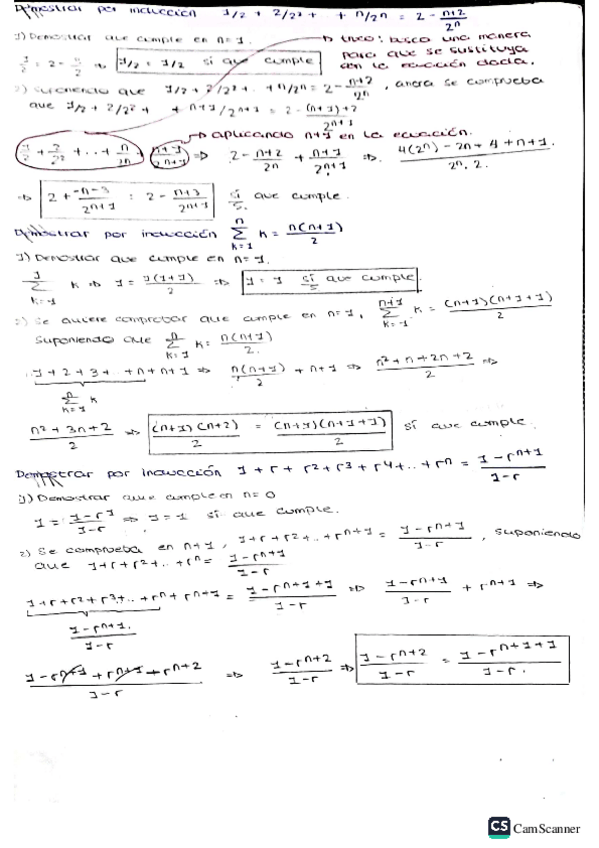 Demostrar por inducción 1/2 + 2/2² + .. + n/2ⁿ = 2 - (n+2)/2ⁿ
1) Demostrar que cumple en n=1.
→ truco: busco una manera para que se sustituya en la ecuación dada.
⇒ 1/2 = 1/2 sí que cumple
2) suponiendo que 1/2 + 2/2² + .. + n/2ⁿ = 2 - (n+2)/2ⁿ, ahora se comprueba
que 1/2 + 2/2² + + n+1/2ⁿ⁺¹ = 2 - ((n+1)+2)/2ⁿ⁺¹
→ aplicando n+1 en la ecuación.
1/2 + 2/2² + .. + n/2ⁿ + (n+1)/2ⁿ⁺¹ ⇒ 2 - (n+2)/2ⁿ + (n+1)/2ⁿ⁺¹ ⇒ (4(2ⁿ) - 2n - 4 + n + 1)/(2ⁿ. 2)
⇒ 2 + (-n-3)/2ⁿ⁺¹ = 2 - (n+3)/2ⁿ⁺¹ sí que cumple.
Demostrar por inducción Σ(k=1, n) k = n(n+1)/2
1) Demostrar que cumple en n=1.
Σ(k=1, 1) k ⇒ 1 = 1(1+1)/2 ⇒ 1 = 1 sí que cumple.
2) Se quiere comprobar que cumple en n=1, Σ(k=1, n+1) k = (n+1)(n+1+1)/2
suponiendo que Σ(k=1, n) k = n(n+1)/2.
1 + 2 + 3 + .. + n + n+1 ⇒ n(n+1)/2 + n+1 ⇒ (n²+n+2n+2)/2 ⇒
Σ(k=1, n) k
(n²+3n+2)/2 ⇒ (n+1)(n+2)/2 = (n+1)(n+1+1)/2 sí que cumple.
Demostrar por inducción 1+r+r²+r³+r⁴+..+rⁿ = (1-rⁿ⁺¹)/(1-r)
1) Demostrar que cumple en n=0
1 = (1-r¹)/(1-r) ⇒ 1=1 sí que cumple.
2) Se comprueba en n+1, 1+r+r²+..+rⁿ⁺¹ = (1-rⁿ⁺¹)/(1-r), suponiendo
que 1+r+r²+..+rⁿ = (1-rⁿ⁺¹)/(1-r)
1+r+r²+r³+..+rⁿ+rⁿ⁺¹ = (1-rⁿ⁺¹⁺¹)/(1-r) ⇒ (1-rⁿ⁺¹)/(1-r) + rⁿ⁺¹ ⇒
(1-rⁿ⁺¹)/(1-r)
(1-rⁿ⁺¹+rⁿ⁺¹+rⁿ⁺²)/(1-r) ⇒ (1-rⁿ⁺²)/(1-r) ⇒ (1-rⁿ⁺²)/(1-r) = (1-rⁿ⁺¹⁺¹)/(1-r).
CS CamScanner